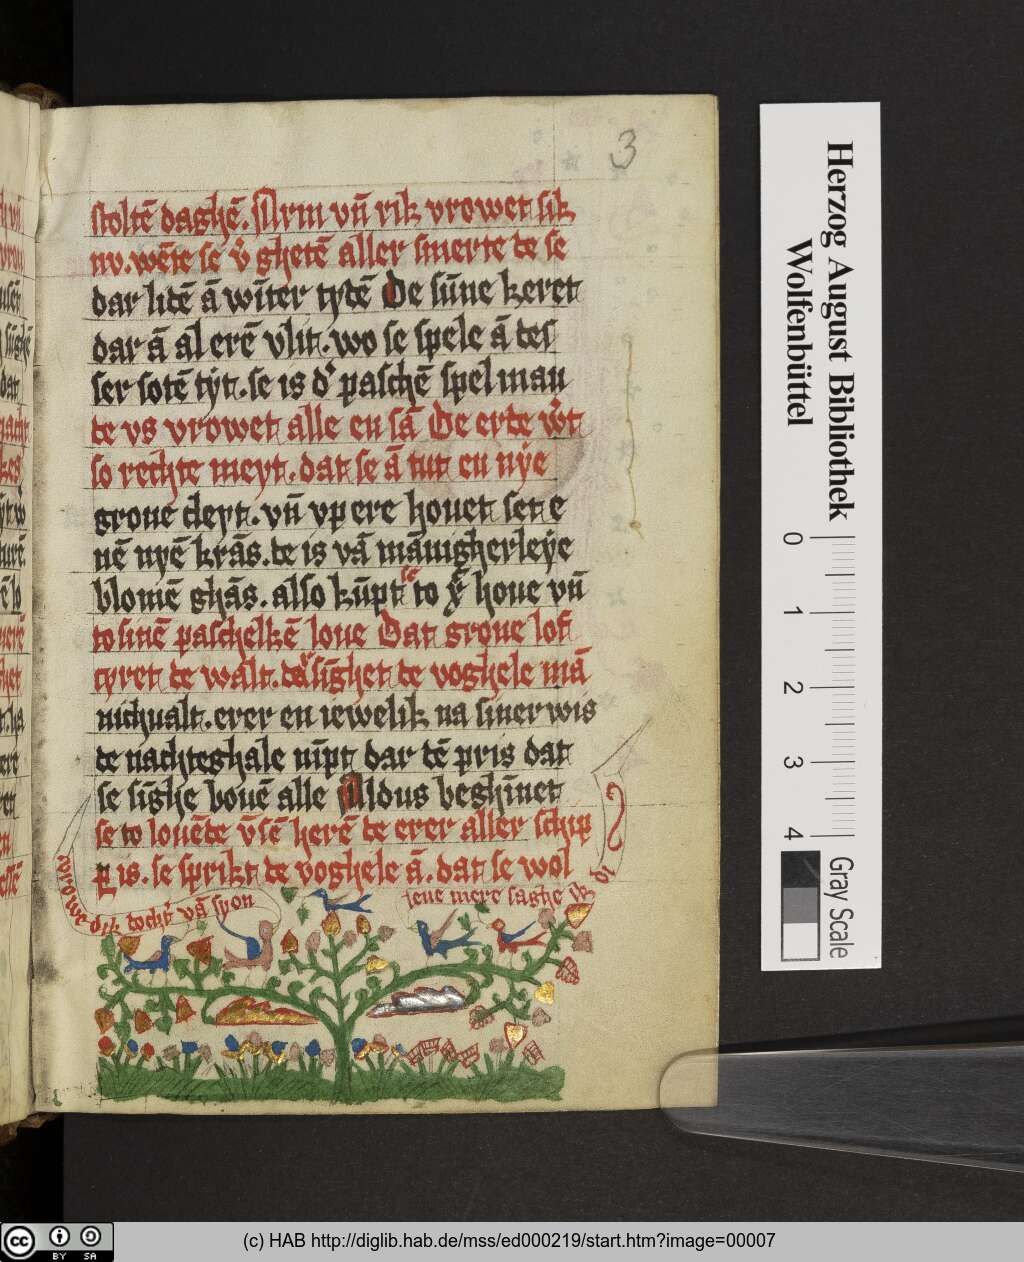 3
stoltē daghē. Arm vn̄ rik vrowet sik
nv. wēte se v̄ ghetē aller smerte de se
dar litē ā wīter tytē De sūne keret
dar ā al erē vlit. wo se spele ā des
ser sotē tyt. se is d' paschē spel man
te vs vrowet alle en sā De erde w̄t
so rechte meyt. dat se ā tut en nye
grone cleyt. vn̄ vp ere houet set e
nē nyē krās. de is vā mānigherleye
blomē ghās. also kūpt se to x̄ houe vn̄
to sinē paschelkē loue Dat grone lof
tyret de walt. dar sīghet de voghele mā
nichualt. erer en iewelik na siner wis
de nachteghale nīpt dar dē pris dat
se sīghe bouē alle Aldus beghīnet
se to louēde v̄sē herē de erer aller schip
per is. se sprikt de voghele ā. dat se wol
vrowe dik docht' vā syon
iene mere saghe ik di
Herzog August Bibliothek
Wolfenbüttel
0 1 2 3 4
Gray Scale
cc BY SA
(c) HAB http://diglib.hab.de/mss/ed000219/start.htm?image=00007